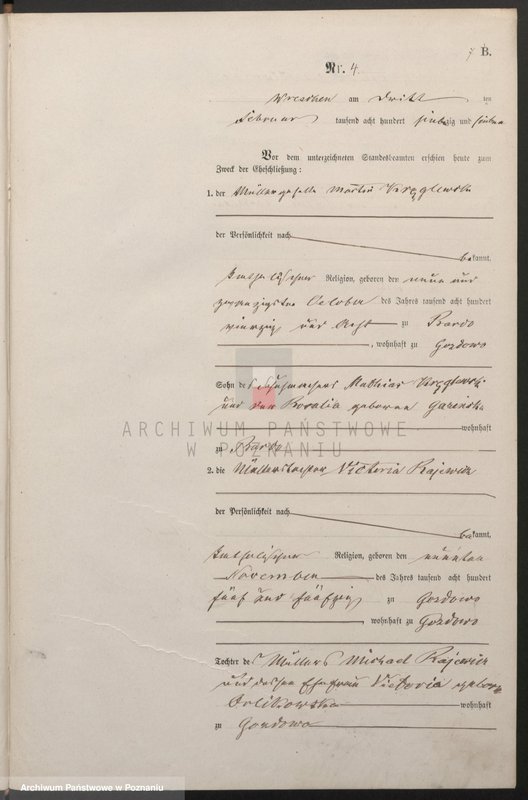 7 B.
Nr. 4.
Wreschen am dritten
Februar tausend acht hundert siebenzig und sieben
Vor dem unterzeichneten Standesbeamten erschien heute zum
Zweck der Eheschließung:
1. der Müllergeselle Martin
der Persönlichkeit nach
bekannt,
katholischer Religion, geboren den neun und
zwanzigsten October des Jahres tausend acht hundert
vierzig und acht zu Bardo
, wohnhaft zu Gozdowo
Sohn des Mathias
und der Rosalia geborene
wohnhaft
zu Bardo
2. die Müllerstochter Victoria Rajewicz
der Persönlichkeit nach
bekannt,
katholischer Religion, geboren den neunten
November des Jahres tausend acht hundert
fünf und fünfzig zu Gozdowo
, wohnhaft zu Gozdowo
Tochter des Müllers Michael Rajewicz
und dessen Ehefrau Victoria geborene
Orlikowska wohnhaft
zu Gozdowo
ARCHIWUM PAŃSTWOWE
W POZNANIU
Archiwum Państwowe w Poznaniu